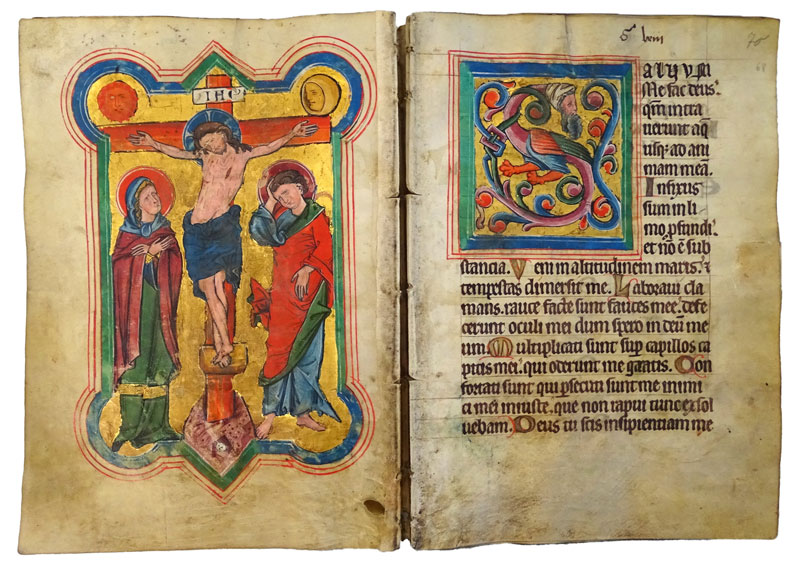 IHC
70
68
SALVUM
Me fac deus.
qm̄ intra
uerunt aq̄
usq; ad ani
mam meā.
Infixus
sum in li
mo p̱fundi.
et nō ē sub
stancia. Veni in altitudinem maris. ⁊
tempestas dimersit me. Laboraui cla
mans. rauce facte sunt fauces mee. defe
cerunt oculi mei dum spero in deū me
um. Multiplicati sunt sup̱ capillos ca
pitis mei. qui oderunt me gratis. Con
fortati sunt qui p̱secuti sunt me inimi
ci mei iniuste. que non rapui tunc exsol
uebam. Deus tu scis insipientiam me